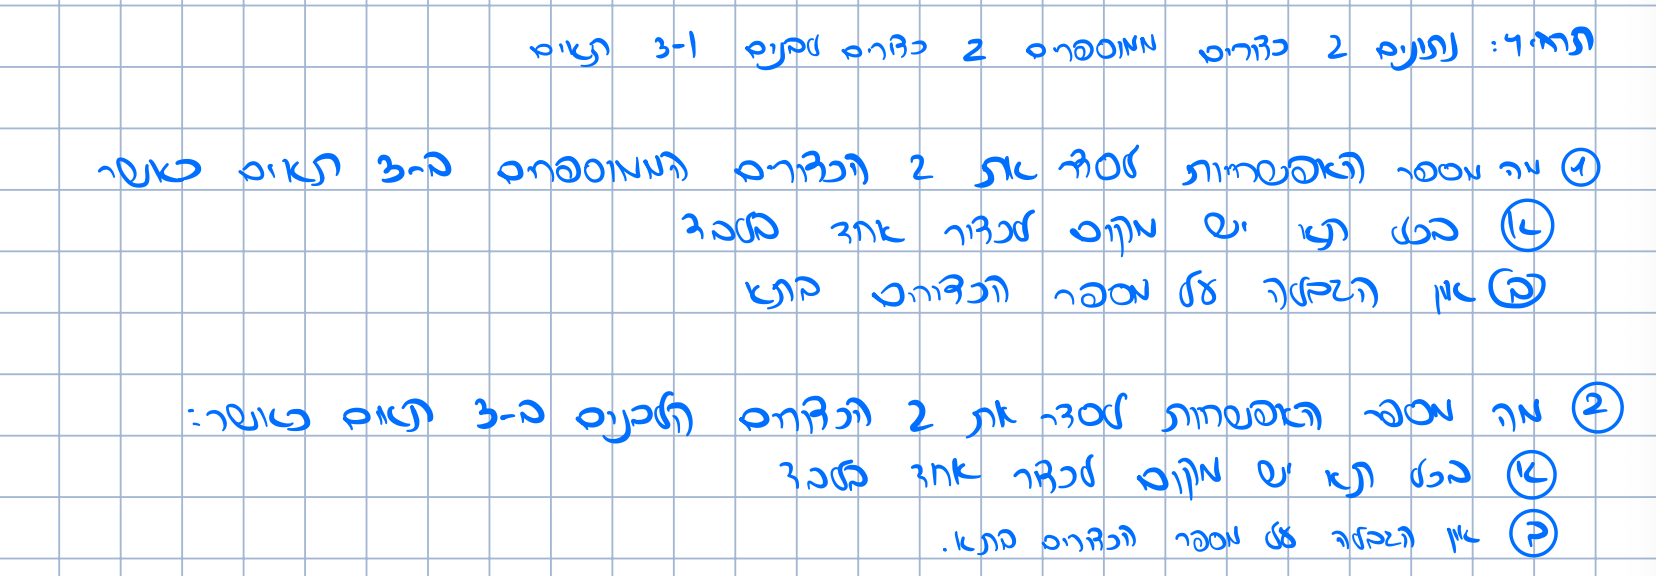 תרגיל: נתונים 2 כדורים ממוספרים 2 כדורים לבנים ו-3 תאים
① מה מספר האפשרויות לסדר את 2 הכדורים הממוספרים ב-3 תאים כאשר
Ⓐ בכל תא יש מקום לכדור אחד בלבד
ⓑ אין הגבלה על מספר הכדורים בתא
② מה מספר האפשרויות לסדר את 2 הכדורים הלבנים ב-3 תאים כאשר:
א בכל תא יש מקום לכדור אחד בלבד
ב אין הגבלה על מספר הכדורים בתא.